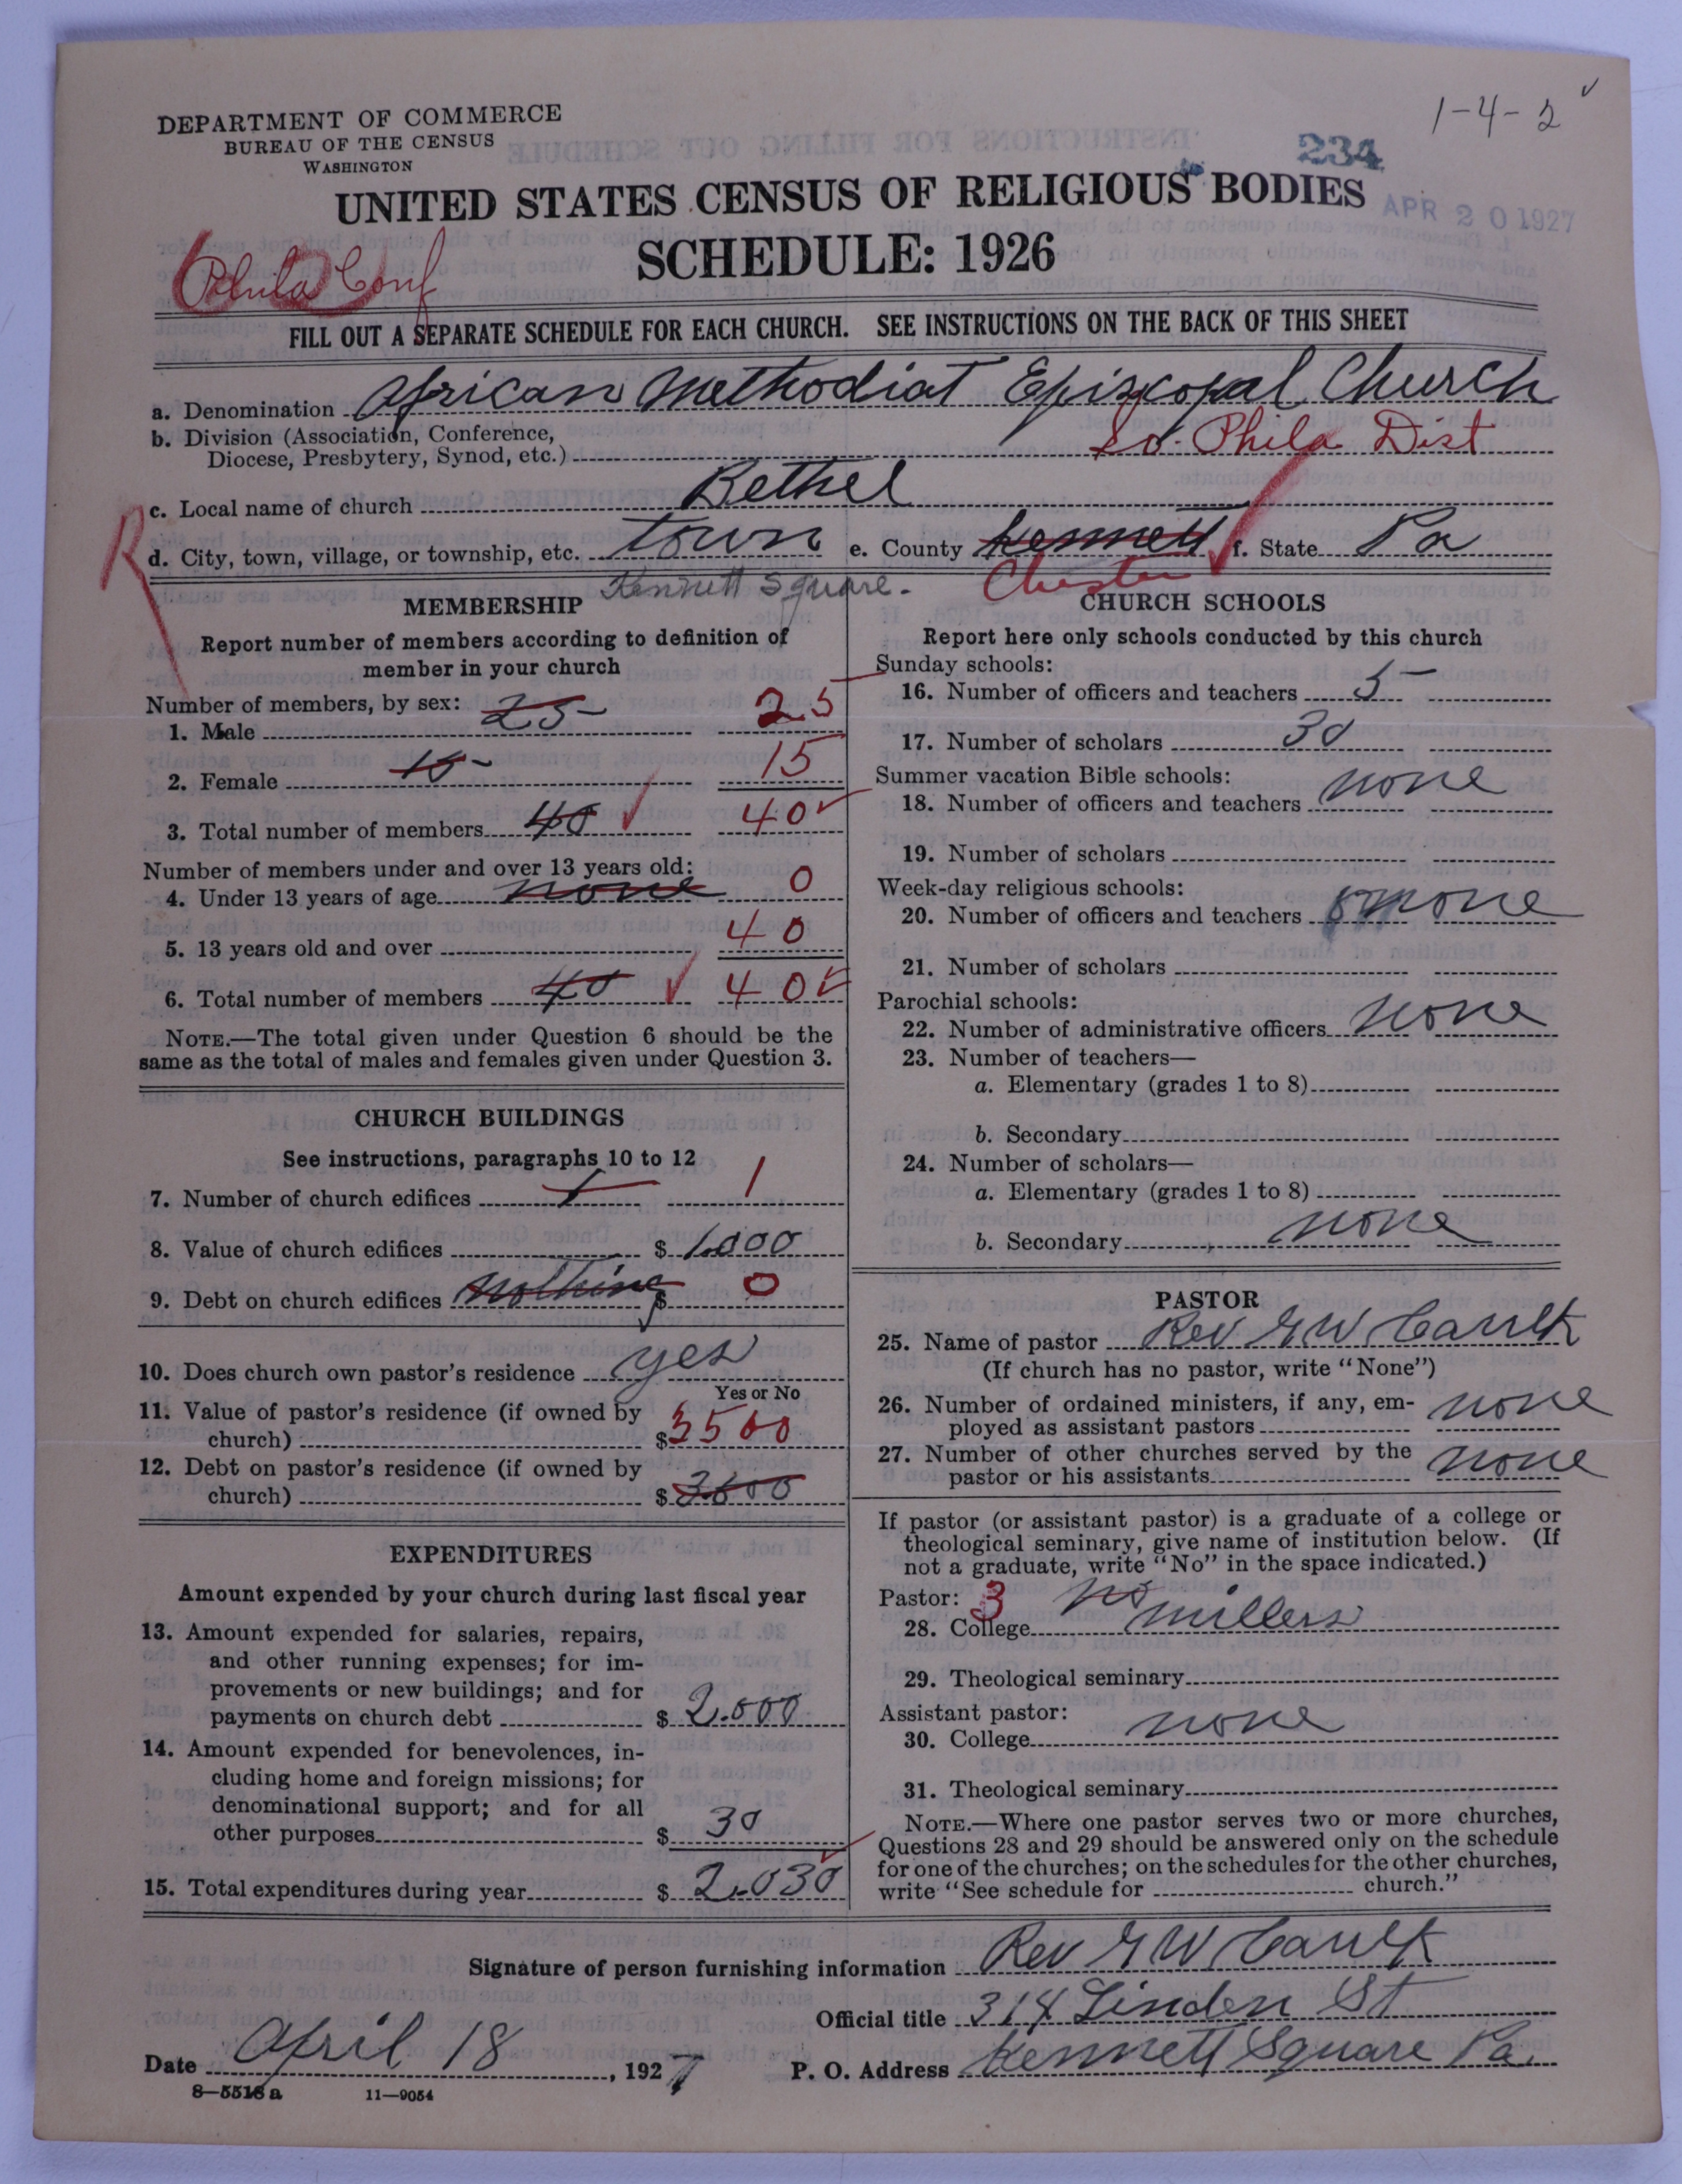 1-4-2
DEPARTMENT OF COMMERCE
BUREAU OF THE CENSUS
WASHINGTON
234
UNITED STATES CENSUS OF RELIGIOUS BODIES
APR 20 1927
SCHEDULE: 1926
Phila Conf
FILL OUT A SEPARATE SCHEDULE FOR EACH CHURCH. SEE INSTRUCTIONS ON THE BACK OF THIS SHEET
a. Denomination African Methodist Episcopal Church
b. Division (Association, Conference,
Diocese, Presbytery, Synod, etc.) So. Phila Dist
c. Local name of church Bethel
R
d. City, town, village, or township, etc. town e. County Kennett f. State Pa
Kennett Square. Chester
MEMBERSHIP
Report number of members according to definition of
member in your church
Number of members, by sex:
1. Male 25 25
2. Female 15 15
3. Total number of members 40 40
Number of members under and over 13 years old:
4. Under 13 years of age none 0
5. 13 years old and over 40
6. Total number of members 40 40
NOTE.—The total given under Question 6 should be the
same as the total of males and females given under Question 3.
CHURCH BUILDINGS
See instructions, paragraphs 10 to 12
7. Number of church edifices 1 1
8. Value of church edifices $ 1.000
9. Debt on church edifices nothing $ 0
10. Does church own pastor's residence yes
Yes or No
11. Value of pastor's residence (if owned by
church) $ 3500
12. Debt on pastor's residence (if owned by
church) $
EXPENDITURES
Amount expended by your church during last fiscal year
13. Amount expended for salaries, repairs,
and other running expenses; for im-
provements or new buildings; and for
payments on church debt $ 2.000
14. Amount expended for benevolences, in-
cluding home and foreign missions; for
denominational support; and for all
other purposes $ 30
15. Total expenditures during year $ 2.030
CHURCH SCHOOLS
Report here only schools conducted by this church
Sunday schools:
16. Number of officers and teachers 5
17. Number of scholars 30
Summer vacation Bible schools:
18. Number of officers and teachers none
19. Number of scholars
Week-day religious schools:
20. Number of officers and teachers none
21. Number of scholars
Parochial schools:
22. Number of administrative officers none
23. Number of teachers—
a. Elementary (grades 1 to 8)
b. Secondary
24. Number of scholars—
a. Elementary (grades 1 to 8)
b. Secondary none
PASTOR
25. Name of pastor Rev G W Caulk
(If church has no pastor, write "None")
26. Number of ordained ministers, if any, em-
ployed as assistant pastors none
27. Number of other churches served by the
pastor or his assistants none
If pastor (or assistant pastor) is a graduate of a college or
theological seminary, give name of institution below. (If
not a graduate, write "No" in the space indicated.)
Pastor: 3 no
28. College millers
29. Theological seminary
Assistant pastor:
30. College none
31. Theological seminary
NOTE.—Where one pastor serves two or more churches,
Questions 28 and 29 should be answered only on the schedule
for one of the churches; on the schedules for the other churches,
write "See schedule for church."
Signature of person furnishing information Rev G W Caulk
Official title 314 Linden St
Date April 18, 1927 P. O. Address Kennett Square Pa.
8—5518 a 11—9054